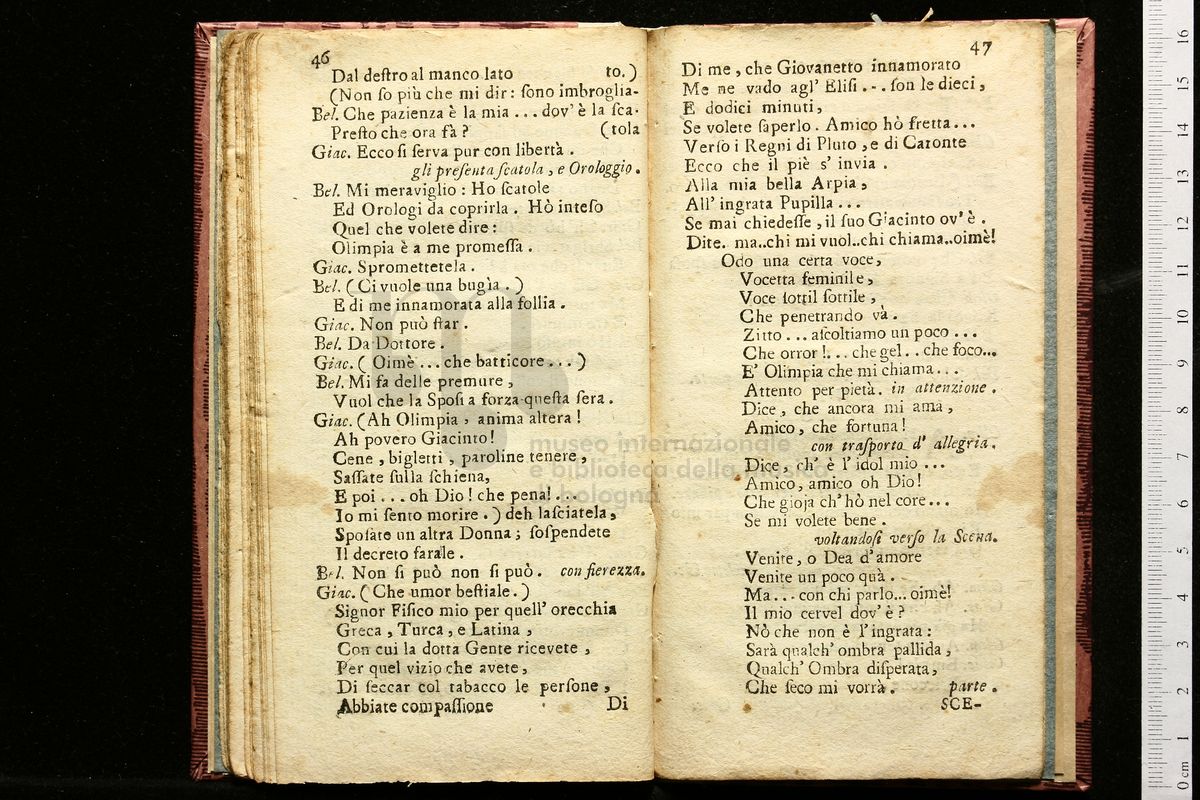 46
Dal deſtro al manco lato to.)
(Non ſo più che mi dir: ſono imbroglia-
Bel. Che pazienza è la mia ... dov' è la ſca-
Preſto che ora fà? (tola
Giac. Ecco ſi ſerva pur con libertà.
gli preſenta ſcatola, e Orologgio.
Bel. Mi meraviglio: Ho ſcatole
Ed Orologi da coprirla. Hò inteſo
Quel che volete dire:
Olimpia è a me promeſſa.
Giac. Spromettetela.
Bel. (Ci vuole una bugìa.)
E di me innamorata alla follia.
Giac. Non può ſtar.
Bel. Da Dottore.
Giac. (Oimè ... che batticore ...)
Bel. Mi fa delle premure,
Vuol che la Spoſi a forza queſta ſera.
Giac. (Ah Olimpia, anima altera!
Ah povero Giacinto!
Cene, bigletti, paroline tenere,
Saſſate ſulla ſchiena,
E poi ... oh Dio! che pena! ...
Io mi ſento morire.) deh laſciatela,
Spoſate un altra Donna; ſoſpendete
Il decreto farale.
Bel. Non ſi può non ſi può. con fierezza.
Giac. (Che umor beſtiale.)
Signor Fiſico mio per quell' orecchia
Greca, Turca, e Latina,
Con cui la dotta Gente ricevete,
Per quel vizio che avete,
Di ſeccar col tabacco le perſone,
Abbiate compaſſione Di
47
Di me, che Giovanetto innamorato
Me ne vado agl' Eliſi ... ſon le dieci,
E dodici minuti,
Se volete ſaperlo. Amico hò fretta ...
Verſo i Regni di Pluto, e di Caronte
Ecco che il piè s' invia.
Alla mia bella Arpia,
All' ingrata Pupilla ...
Se mai chiedeſſe, il ſuo Giacinto ov' è.
Dite. ma..chi mi vuol..chi chiama..oimè!
Odo una certa voce,
Vocetta feminile,
Voce ſottil ſottile,
Che penetrando và.
Zitto ... aſcoltiamo un poco ...
Che orror!... che gel.. che foco...
E' Olimpia che mi chiama...
Attento per pietà. in attenzione.
Dice, che ancora mi ama,
Amico, che fortuna!
con traſporto d' allegria.
Dice, ch' è l' idol mio ...
Amico, amico oh Dio!
Che gioja ch' hò nel core ...
Se mi volete bene.
voltandoſi verſo la Scena.
Venite, o Dea d'amore
Venite un poco quà.
Ma... con chi parlo... oimè!
Il mio cervel dov' è?
Nò che non è l'ingrata:
Sarà qualch' ombra pallida,
Qualch' Ombra diſperata,
Che ſeco mi vorrà. parte.
SCE-
museo internazionale
e biblioteca della musica
di bologna
0 cm 1 2 3 4 5 6 7 8 9 10 11 12 13 14 15 16